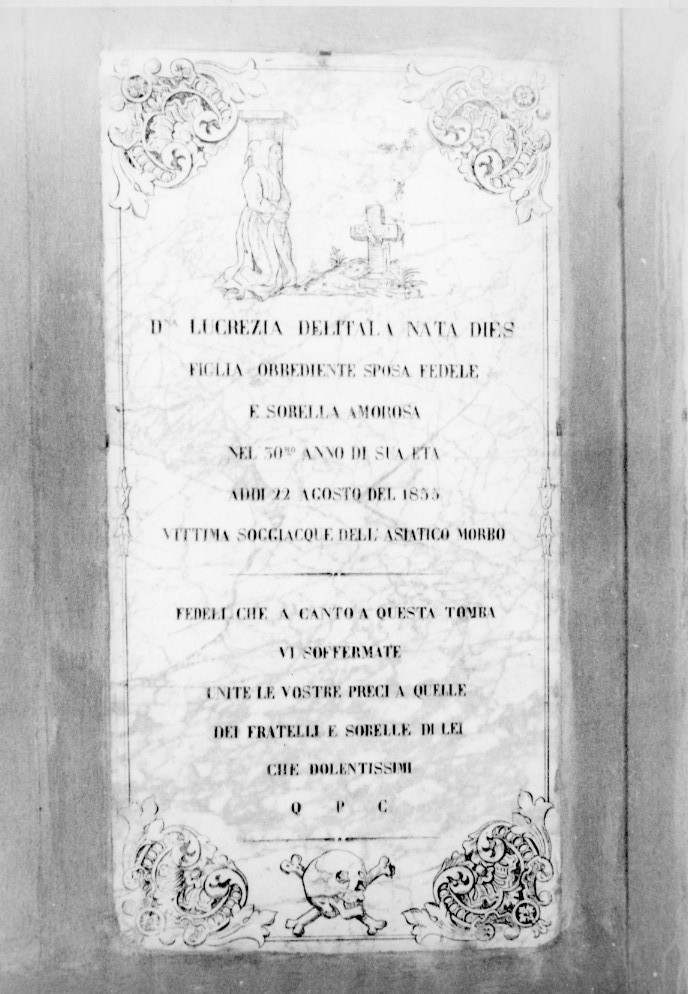 DNA LUCREZIA DELITALA NATA DIES
FIGLIA OBBEDIENTE SPOSA FEDELE
E SORELLA AMOROSA
NEL 30MO ANNO DI SUA ETA
ADDI 22 AGOSTO DEL 1855
VITTIMA SOGGIACQUE DELL' ASIATICO MORBO
FEDELI CHE A CANTO A QUESTA TOMBA
VI SOFFERMATE
UNITE LE VOSTRE PRECI A QUELLE
DEI FRATELLI E SORELLE DI LEI
CHE DOLENTISSIMI
Q P C